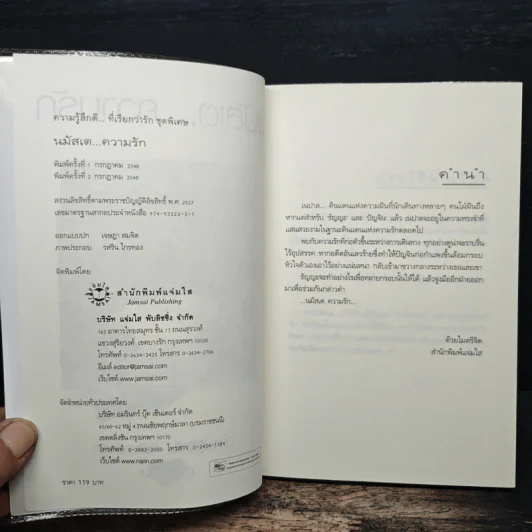 ความรู้สึกดี... ที่เรียกว่ารัก ชุดพิเศษ
นมัสเต...ความรัก
พิมพ์ครั้งที่ 1 กรกฎาคม 2548
พิมพ์ครั้งที่ 2 กรกฎาคม 2548
สงวนลิขสิทธิ์ตามพระราชบัญญัติลิขสิทธิ์ พ.ศ. 2537
เลขมาตรฐานสากลประจำหนังสือ 974-93222-3-1
ออกแบบปก เจษฎา สมจิต
ภาพประกอบ รสริน ไกรทอง
จัดพิมพ์โดย
สำนักพิมพ์แจ่มใส
Jamsai Publishing
บริษัท แจ่มใส พับลิชชิ่ง จำกัด
163 อาคารไทยสมุทร ชั้น 17 ถนนสุรวงศ์
แขวงสุริยวงศ์ เขตบางรัก กรุงเทพฯ 10500
โทรศัพท์ 0-2634-2425 โทรสาร 0-2634-2766
อีเมล์ editor@jamsai.com
เว็บไซต์ www.jamsai.com
จัดจำหน่ายทั่วประเทศโดย
บริษัท อมรินทร์ บุ๊ค เซ็นเตอร์ จำกัด
65/60-62 หมู่ 4 ถนนชัยพฤกษ์มาลา (บรมราชชนนี)
เขตตลิ่งชัน กรุงเทพฯ 10170
โทรศัพท์ 0-2882-2000 โทรสาร 0-2434-1384
เว็บไซต์ www.naiin.com
ราคา 119 บาท
คำนำ
เนปาล... ดินแดนแห่งความฝันที่นักเดินทางหลายๆ คนใฝ่ฝันถึง
หากแต่สำหรับ ชัญญะ และ ปัญจิน แล้ว เนปาลจะอยู่ในความทรงจำที่
แสนสวยงามในฐานะดินแดนแห่งความรักตลอดไป
พบกับความรักที่ก่อตัวขึ้นระหว่างการเดินทาง ทุกอย่างดูน่าจะราบรื่น
ไร้อุปสรรค หากอดีตอันเลวร้ายซึ่งทำให้ปัญจินก่อกำแพงขึ้นล้อมกรอบ
หัวใจตัวเองเอาไว้อย่างแน่นหนา กลับเข้ามาขวางกลางระหว่างเธอและเขา
ชัญญะจะทำอย่างไรเพื่อคลายกรอบนั้นให้ได้ แล้วจูงมืออีกฝ่ายออก
มาเพื่อร่วมกันกล่าวคำ
...นมัสเต ความรัก...
ด้วยไมตรีจิต
สำนักพิมพ์แจ่มใส